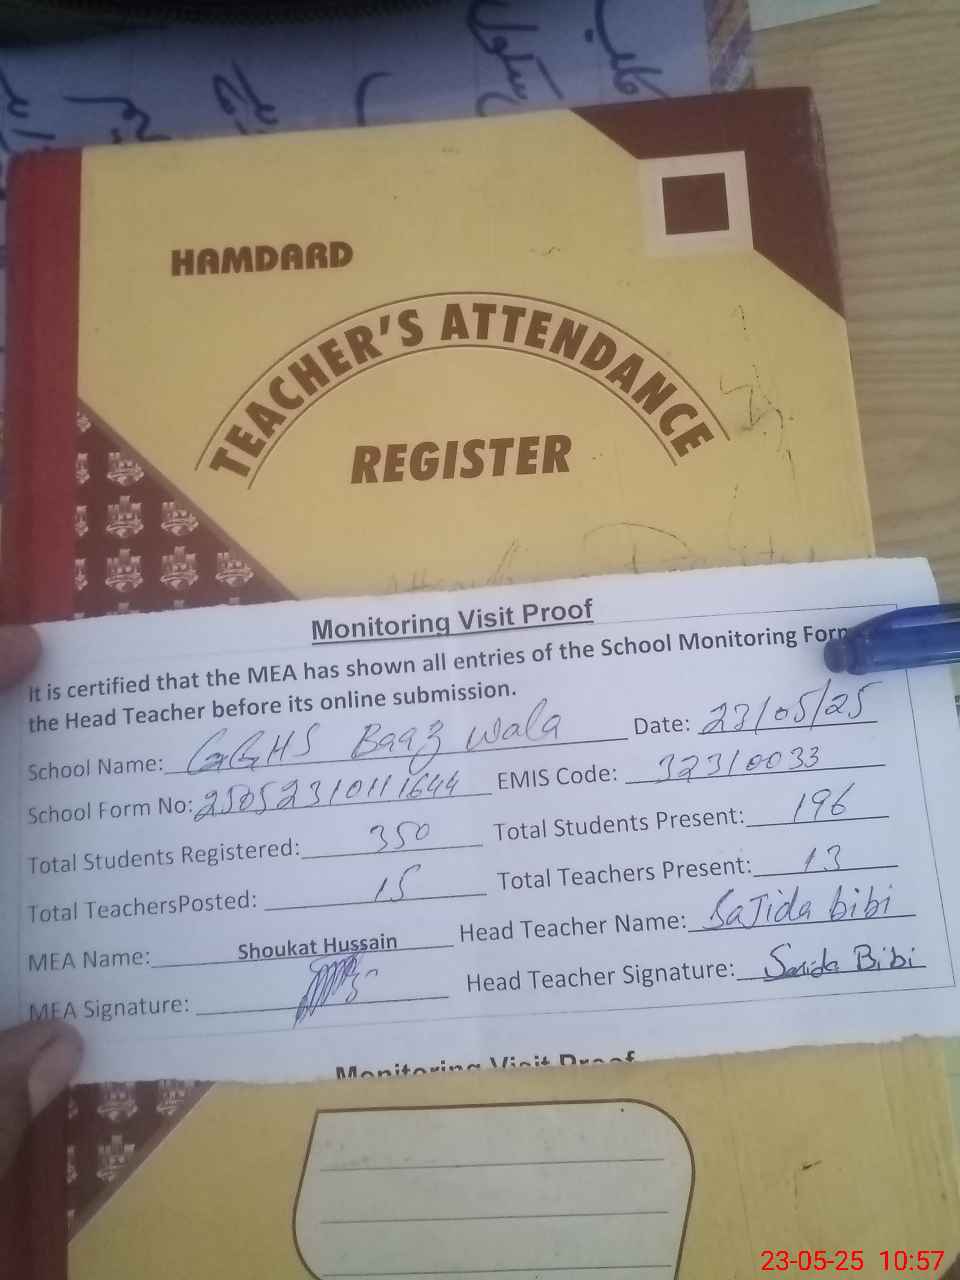 HAMDARD
TEACHER'S ATTENDANCE
REGISTER
Monitoring Visit Proof
It is certified that the MEA has shown all entries of the School Monitoring Form
the Head Teacher before its online submission.
School Name: GGHS Baaz wala Date: 23/05/25
School Form No: 25052310111644 EMIS Code: 32310033
Total Students Registered: 350 Total Students Present: 196
Total TeachersPosted: 15 Total Teachers Present: 13
MEA Name: Shoukat Hussain Head Teacher Name: SaJida bibi
MEA Signature: Head Teacher Signature: Sajida Bibi
Monitoring Visit Proof
23-05-25 10:57